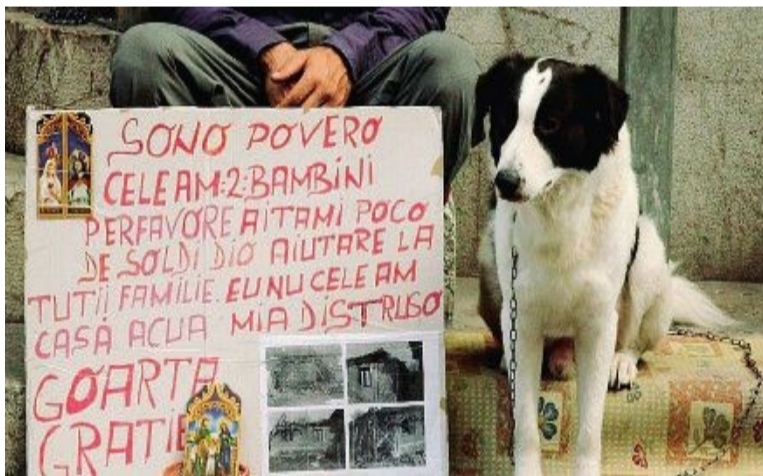 SONO POVERO
CELEAM:2:BAMBINI
PERFAVORE AITAMI POCO
DE SOLDI DIO AIUTARE LA
TUTII FAMILIE. EUNUCELEAM
CASA ACUA MIA DISTRUSO
GOARTA
GRATIE